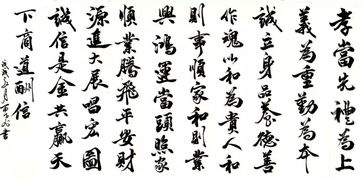 孝當先禮為上
義為重勤為本
誠立身品養德善
作魂以和為貴人和
則事順家和則業
興鴻運當頭照家
順業騰飛平安財
源進大展唱宏圖
誠信是金共贏天
下商道酬信